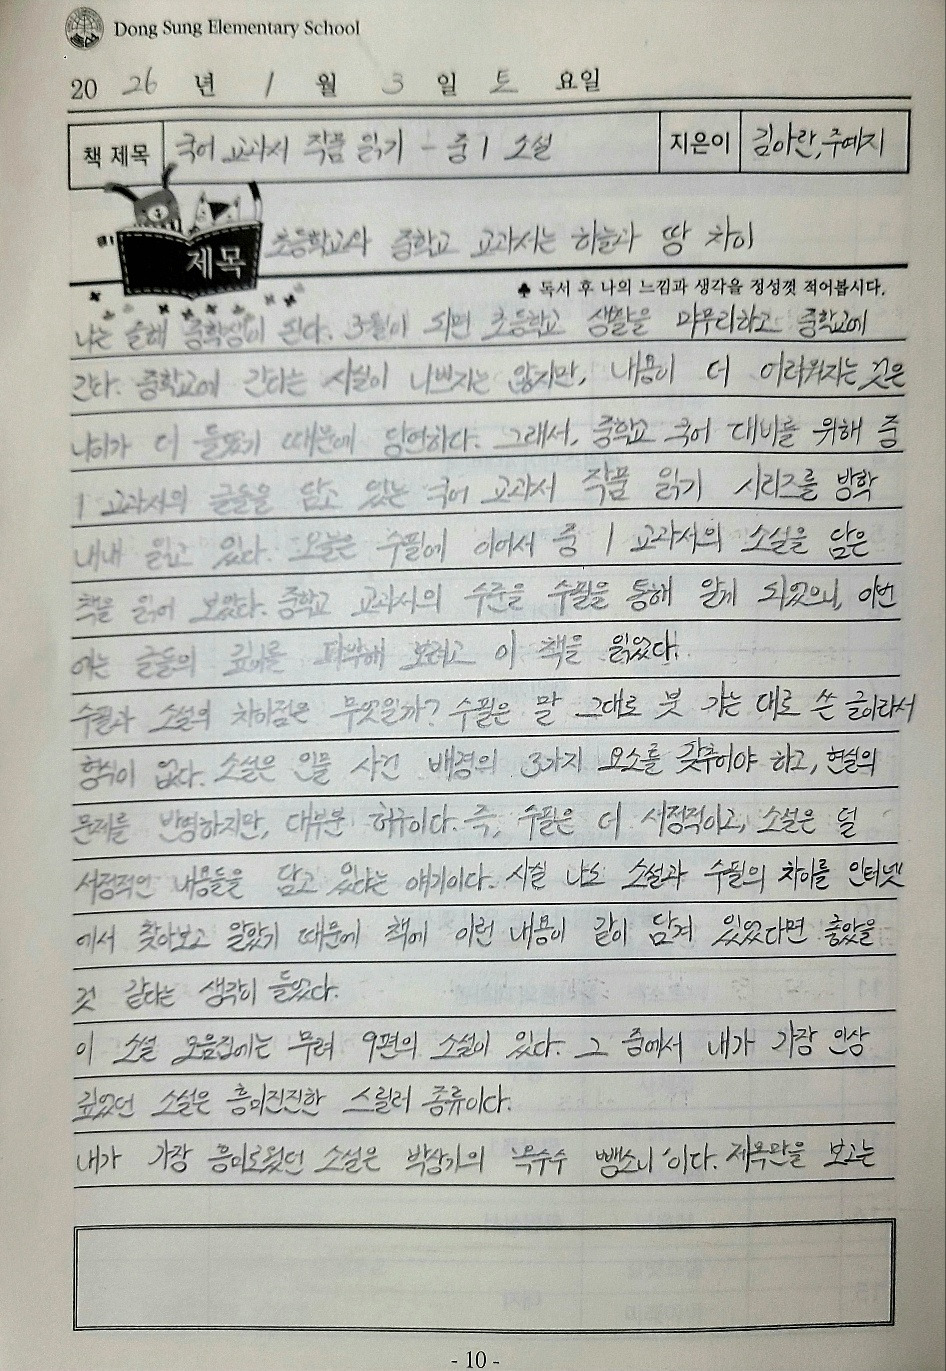 Dong Sung Elementary School
20 26 년 1 월 3 일 토 요일
책 제목 국어 교과서 작품 읽기 - 중1 소설 지은이 김아란, 주예지
제목 초등학교와 중학교 교과서는 하늘과 땅 차이
♣ 독서 후 나의 느낌과 생각을 정성껏 적어봅시다.
나는 올해 중학생이 된다. 3월이 되면 초등학교 생활을 마무리하고 중학교에
간다. 중학교에 간다는 사실이 나쁘지는 않지만, 내용이 더 어려워지는 것은
나이가 더 들었기 때문에 당연하다. 그래서, 중학교 국어 대비를 위해 중
1 교과서의 글들을 담고 있는 국어 교과서 작품 읽기 시리즈를 방학
내내 읽고 있다. 오늘은 수필에 이어서 중 1 교과서의 소설을 담은
책을 읽어 보았다. 중학교 교과서의 수준을 수필을 통해 알게 되었으니, 이번
에는 글들의 깊이를 파악해 보려고 이 책을 읽었다.
수필과 소설의 차이점은 무엇일까? 수필은 말 그대로 붓 가는 대로 쓴 글이라서
형식이 없다. 소설은 인물 사건 배경의 3가지 요소를 갖추어야 하고, 현실의
문제를 반영하지만, 대부분 허구이다. 즉, 수필은 더 서정적이고, 소설은 덜
서정적인 내용들을 담고 있다는 얘기이다. 사실 나도 소설과 수필의 차이를 인터넷
에서 찾아보고 알았기 때문에 책에 이런 내용이 같이 담겨 있었다면 좋았을
것 같다는 생각이 들었다.
이 소설 모음집에는 무려 9편의 소설이 있다. 그 중에서 내가 가장 인상
깊었던 소설은 흥미진진한 스릴러 종류이다.
내가 가장 흥미로웠던 소설은 박상기의 '옥수수 뺑소니'이다. 제목만을 보고는
- 10 -